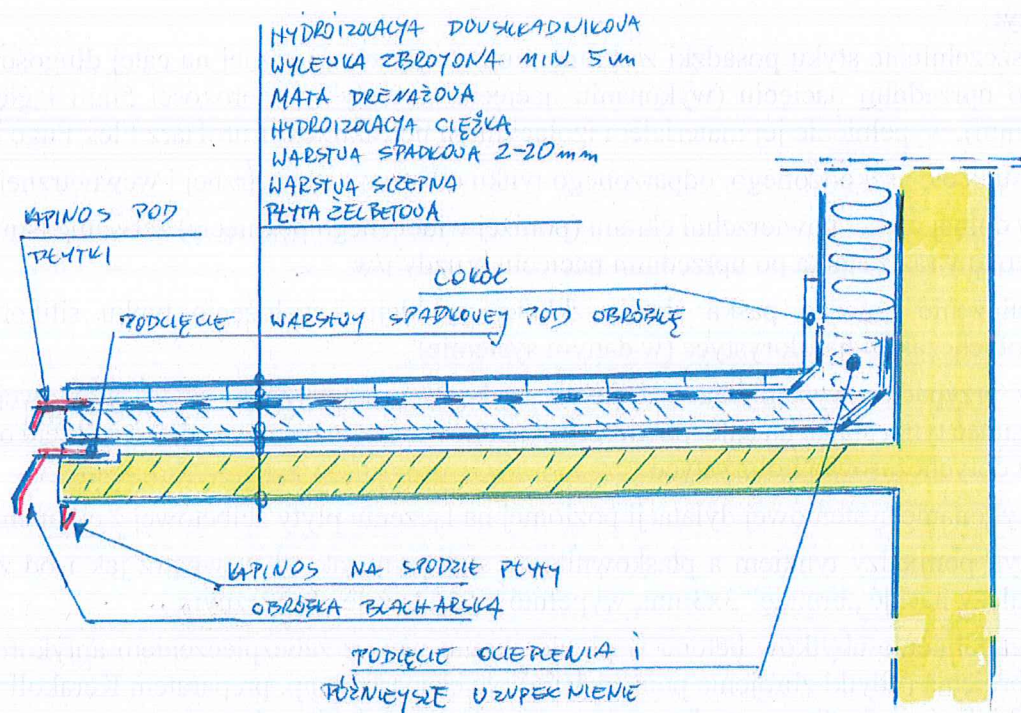 HYDROIZOLACJA DWUSKŁADNIKOWA
WYLEWKA ZBROJONA MIN. 5 cm
MATA DRENAŻOWA
HYDROIZOLACJA CIĘŻKA
WARSTWA SPADKOWA 2-20 mm
WARSTWA SCZEPNA
PŁYTA ŻELBETOWA
KAPINOS POD
PŁYTKI
COKÓŁ
PODCIĘCIE WARSTWY SPADKOWEJ POD OBRÓBKĘ
KAPINOS NA SPODZIE PŁYTY
OBRÓBKA BLACHARSKA
PODCIĘCIE OCIEPLENIA I
PÓŹNIEJSZE UZUPEŁNIENIE